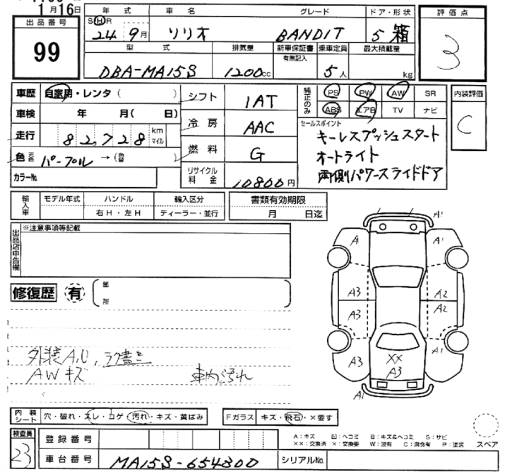 11月16日
出品番号
99
年式 車名 グレード ドア・形状
24年 9月 ソリオ BANDIT 5 箱
型式 排気量 新車保証書 乗車定員 最大積載量
有無記入
DBA-MA15S 1200cc 5人 kg
評価点
3
車歴 自家用・レンタ( )
車検 年 月( 日)
走行 82,728 km マイル
色 パープル →( )
カラーNo.
シフト 1AT
冷房 AAC
燃料 G
リサイクル料金 10800円
純正のみ PS PW AW SR
ABS エアB TV ナビ
セールスポイント
キーレスプッシュスタート
オートライト
両側パワースライドドア
内装評価
C
輸入車 モデル年式 ハンドル 輸入区分 書類有効期限
右H・左H ディーラー・並行 月 日迄
出品店申告欄
※注意事項等記載
修復歴 有 箇所
外装A.U,
AWキズ 車内汚れ
A A1
A3 A2
A3 A2
A A1
XX
A3
内装シート 穴・破れ・スレ・コゲ・汚れ・キズ・黄ばみ
Fガラス キズ・飛石・×要す
スペア
検査員
23
登録番号
車台番号 MA15S-654300
シリアルNo.